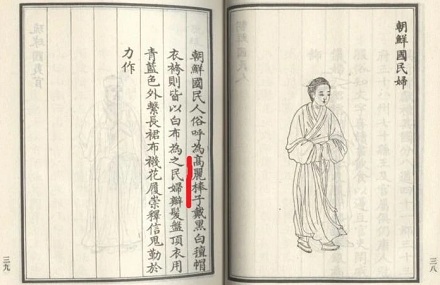 朝鮮國民婦
朝鮮國民人俗呼為高麗棒子戴黑白氊帽
衣袴則皆以白布為之民婦辮髮盤頂衣用
青藍色外繫長裙布襪花履崇釋信鬼勤於
力作
三八
三九